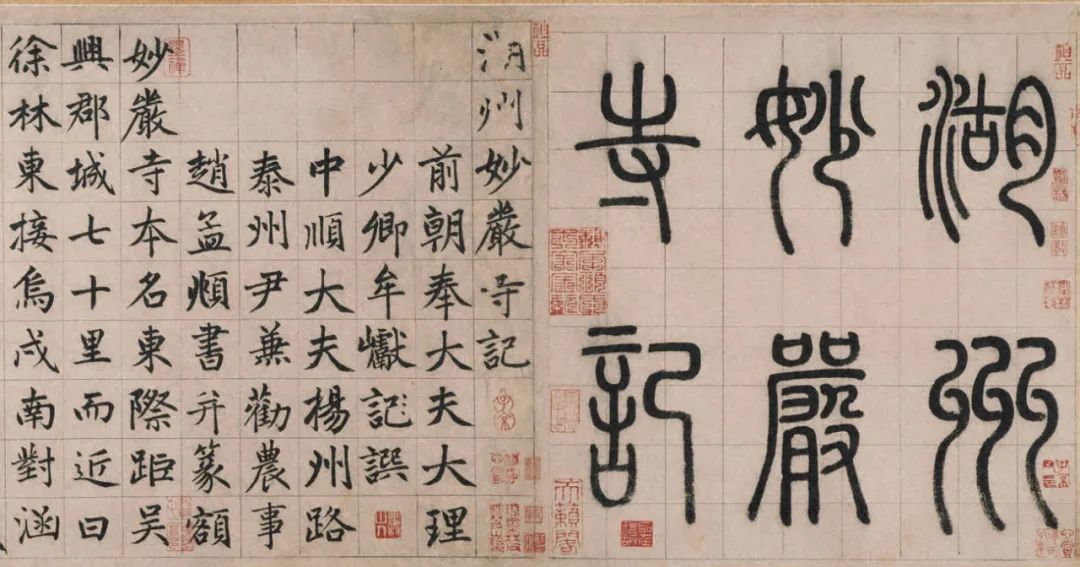 湖州
妙嚴
寺記
天籟閣
湖州妙嚴寺記
子京
前朝奉大夫大理
少卿牟巘記譔
中順大夫揚州路
泰州尹兼勸農事
趙孟頫書并篆額
妙嚴寺本名東際距吳
興郡城七十里而近曰
徐林東接烏戍南對涵